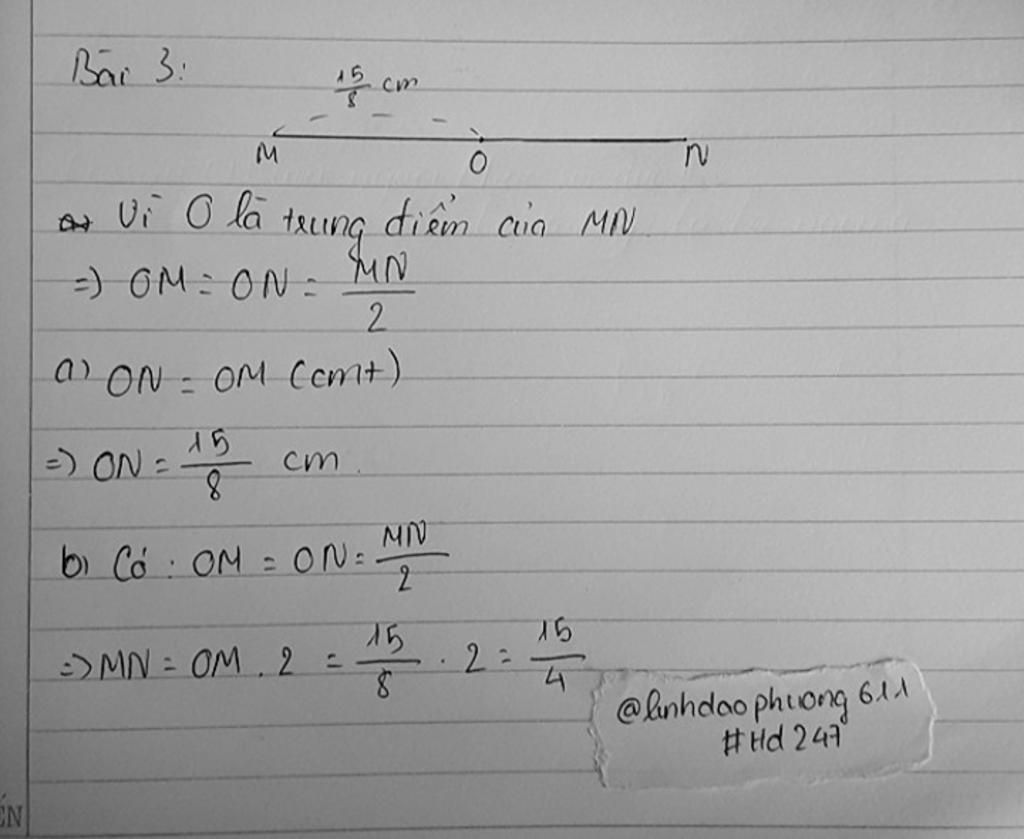 Bài 3:
15/8 cm
M O N
Vì O là trung điểm của MN
=) OM = ON = MN/2
a) ON = OM (cmt)
=) ON = 15/8 cm.
b) Có : OM = ON = MN/2
=> MN = OM . 2 = 15/8 . 2 = 15/4
@linhdaophuong611
#Hd247